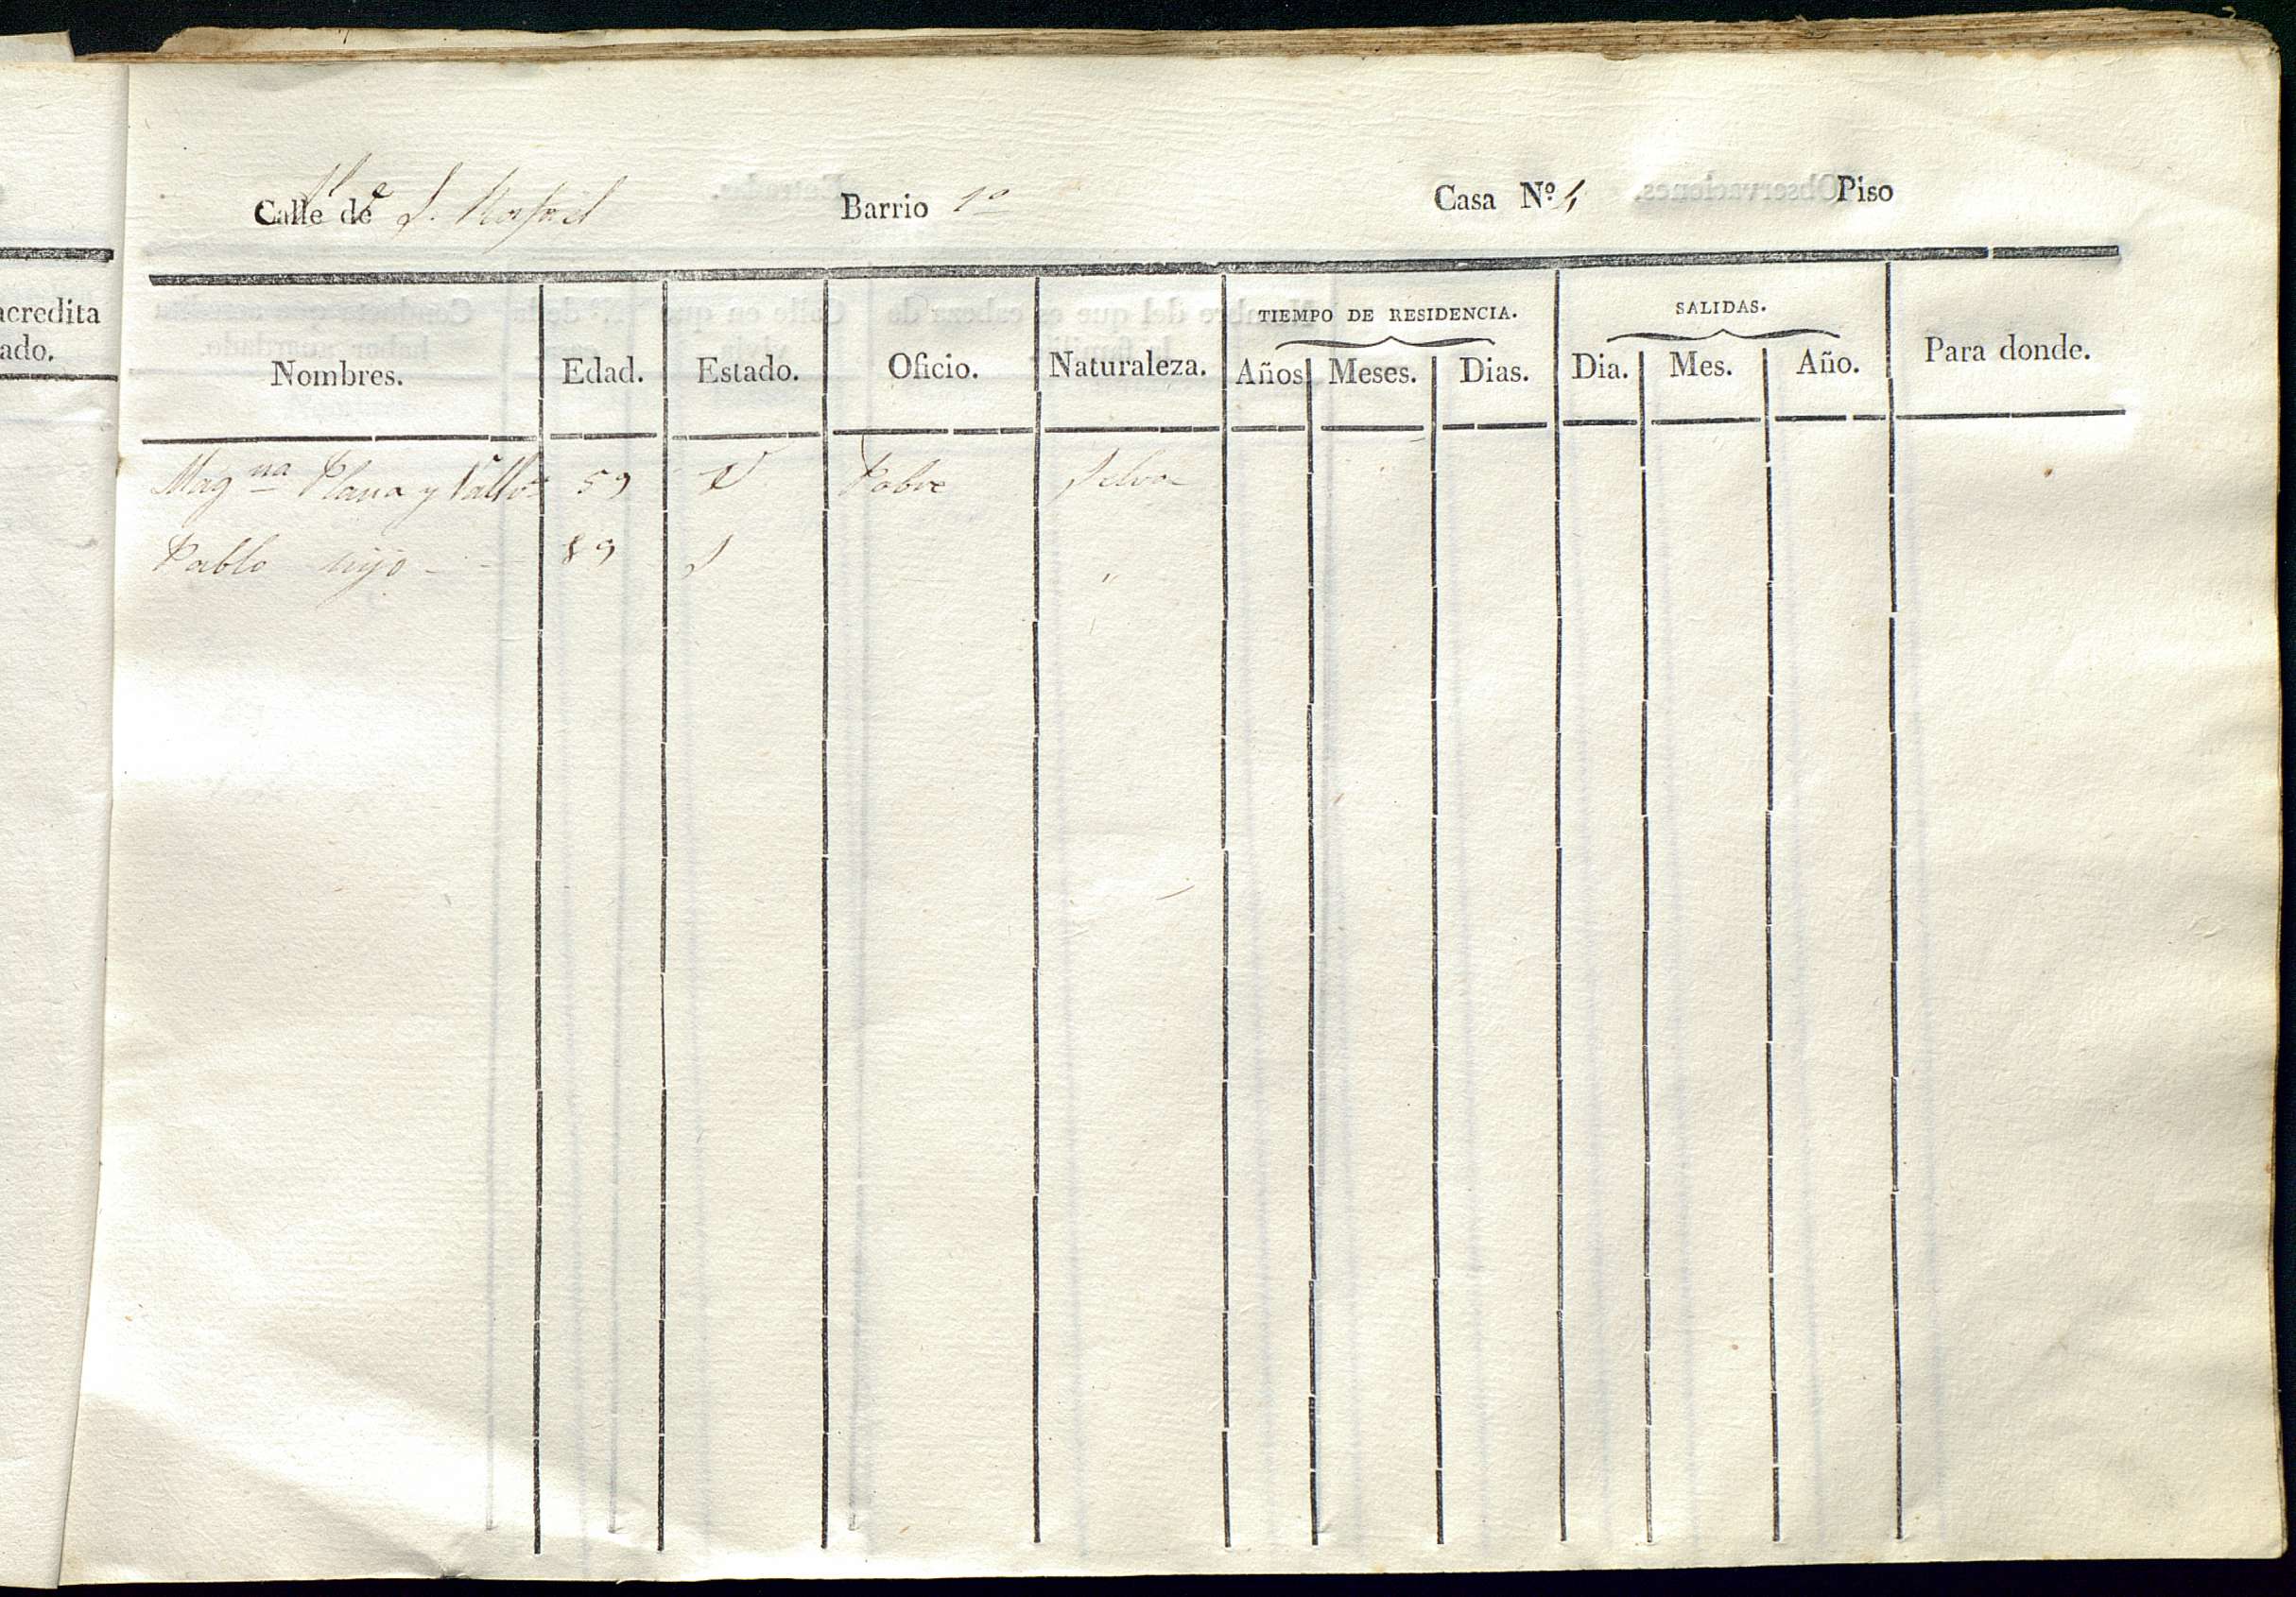 Calle de S. Rafael Barrio 1º Casa Nº Piso
acredita
ado.
TIEMPO DE RESIDENCIA. SALIDAS.
Nombres. Edad. Estado. Oficio. Naturaleza. Años Meses. Dias. Dia. Mes. Año. Para donde.
Magna Plana y 59 V Pobre Selva
Pablo hijo - - 89 S "